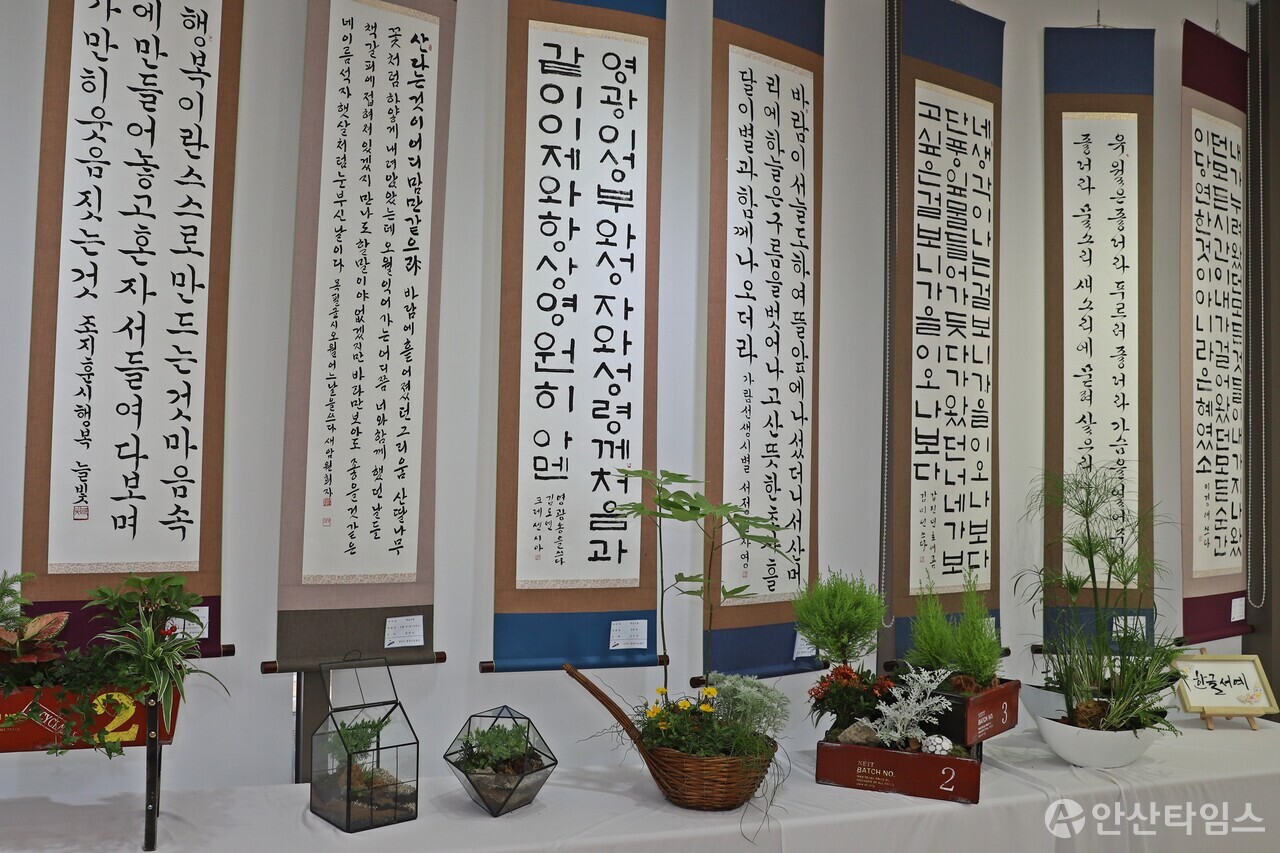 행복이란스스로만드는것마음속
에만들어놓고혼자서들여다보며
가만히웃음짓는것 조지훈시행복 늘빛
산다는것이어디맘만같으랴 바람에흩어졌던그리움 산딸나무
꽃처럼하얗게내려앉았는데오월익어가는어디쯤 너와함께했던날들
책갈피에접혀져있겠지만나도할말이야없겠지만바라만보아도 좋을것같은
네이름석자햇살처럼눈부신날이다 목필균시오월어느날을쓰다 새암원희자
영광이성부와성자와성령께처음과
같이이제와항상영원히 아멘
영광송을쓰다
김도연
크레센시아
바람이서늘도하여뜰앞에나섰더니서산머
리에하늘은구름을벗어나고산뜻한초사흘
달이별과함께나오더라 가람선생시별
네생각이나는걸보니가을이오나보다
단풍이물들어가듯다가왔던너네가보
고싶은걸보니가을이오나보다
유월은좋더라푸르러좋더라가슴을열어
좋더라물소리새소리에묻혀살으리
내가누려왔던모든것들이내가지나왔
던모든시간이내가걸어왔던모든순간
이당연한것이아니라은혜였소
2
BATCH NO.
2
BATCH NO.
3
한글서예
안산타임스